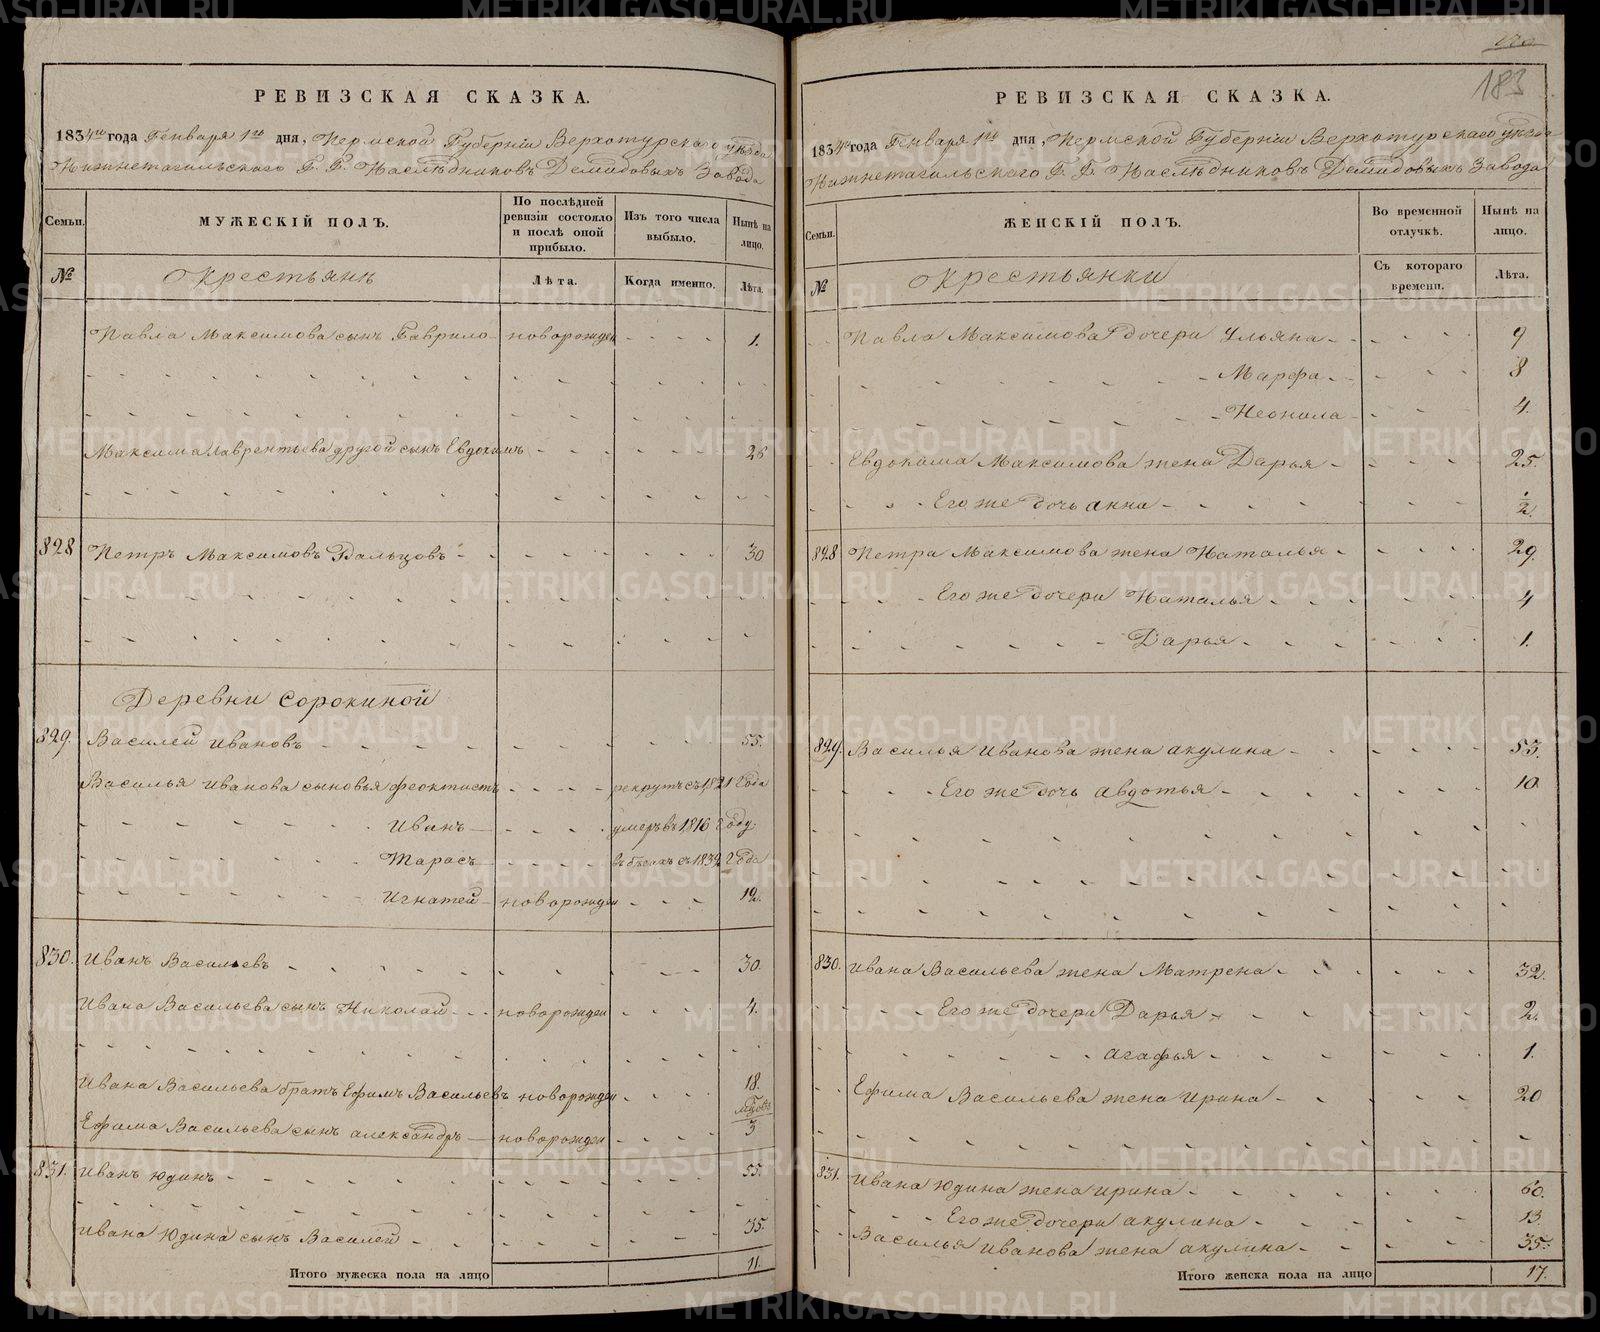 РЕВИЗСКАЯ СКАЗКА.
1834го года Генваря 1го дня, Пермской Губернiи Верхотурскаго уѣзда
Нижнетагильскаго Г. Г. Наслѣдниковъ Демидовыхъ Завода
Семьи.
МУЖЕСКIЙ ПОЛЪ.
По послѣдней ревизiи состояло и послѣ оной прибыло.
Изъ того числа выбыло.
Нынѣ на лицо.
№
Крестьянѣ
Лѣта.
Когда именно.
Лѣта.
Павла Максимова сынъ Гаврило новорожден 1.
Максима Лаврентьева другой сынъ Евдокимъ 26
828 Петръ Максимовъ Пальцовъ 30
Деревни Сорокиной
829. Василей Ивановъ 55.
Василья Иванова сыновья Феоктистъ рекрутъ съ 1821 года
Иванъ умеръ въ 1816 году.
Тарасъ въ бѣгахъ съ 1832 года
Игнатей новорожден 12.
830. Иванъ Васильевъ 30.
Ивана Васильева сынъ Николай новорожден 4.
Ивана Васильева братъ Ефимъ Васильевъ новорожден 18.
Ефима Васильева сынъ Александръ новорожден 3
831. Иванъ Юдинъ 55.
Ивана Юдина сынъ Василей 35.
Итого мужеска пола на лицо 11.
183
РЕВИЗСКАЯ СКАЗКА.
1834го года Генваря 1го дня, Пермской Губернiи Верхотурскаго уѣзда
Нижнетагильскаго Г. Г. Наслѣдниковъ Демидовыхъ Завода
Семьи.
ЖЕНСКIЙ ПОЛЪ.
Во временной отлучкѣ.
Нынѣ на лицо.
№
Крестьянки
Съ котораго времени.
Лѣта.
Павла Максимова дочери Ульяна 9
Марфа 8
Неонила 4.
Евдокима Максимова жена Дарья 25.
Его же дочь Анна ½
828 Петра Максимова жена Наталья 29.
Его же дочери Наталья 4
Дарья 1.
829. Василья Иванова жена Акулина 53.
Его же дочь Авдотья 10.
830. Ивана Васильева жена Матрена 32.
Его же дочери Дарья 2.
Агафья 1.
Ефима Васильева жена Ирина 20
831. Ивана Юдина жена Ирина 60.
Его же дочери Акулина 13.
Василья Иванова жена Акулина 35.
Итого женска пола на лицо 17.
METRIKI.GASO-URAL.RU